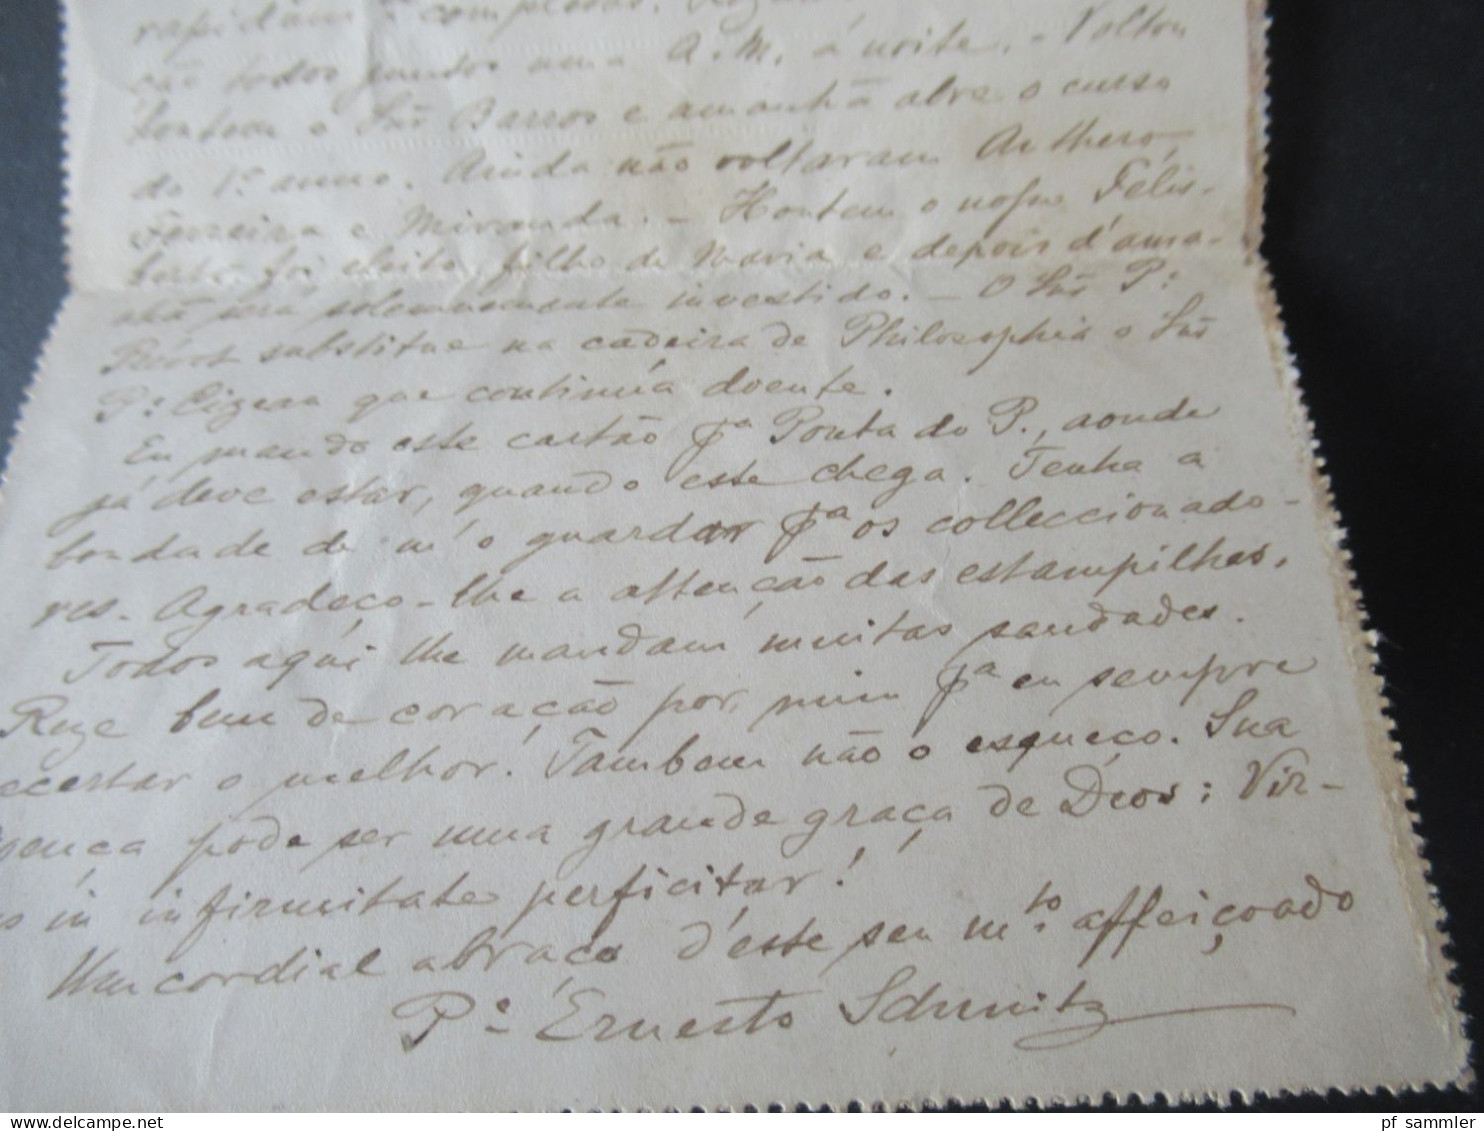 rapidam.te completas.
ção todos juntos uma A. M. á noite. - Voltou
hontem o Snr Barros e amanhã abre o curso
do 1º anno. Ainda não voltaram Anthero,
Ferreira e Miranda. - Hontem o nosso Felis-
berto foi eleito filho de Maria e depois d'ama-
nhã será solemnemente investido. - O Snr P:
substitue na cadeira de Philosophia o Snr
P: que continúa doente.
Eu mando este cartão pª Ponta do P., aonde
já deve estar, quando este chega. Tenha a
bondade de m'o guardar pª os colleccionado-
res. Agradeço-lhe a attenção das estampilhas.
Todos aqúi lhe mandam muitas saudades.
Roze bem de coração por mim pª eu sempre
acertar o melhor. Tambem não o esqueço. Sua
doença pode ser uma grande graça de Deos: Vir-
tus in infirmitate perficitur!
Um cordial abraço d'este seu m.to affeiçoado
P.e Ernesto Schmitz
pf sammler